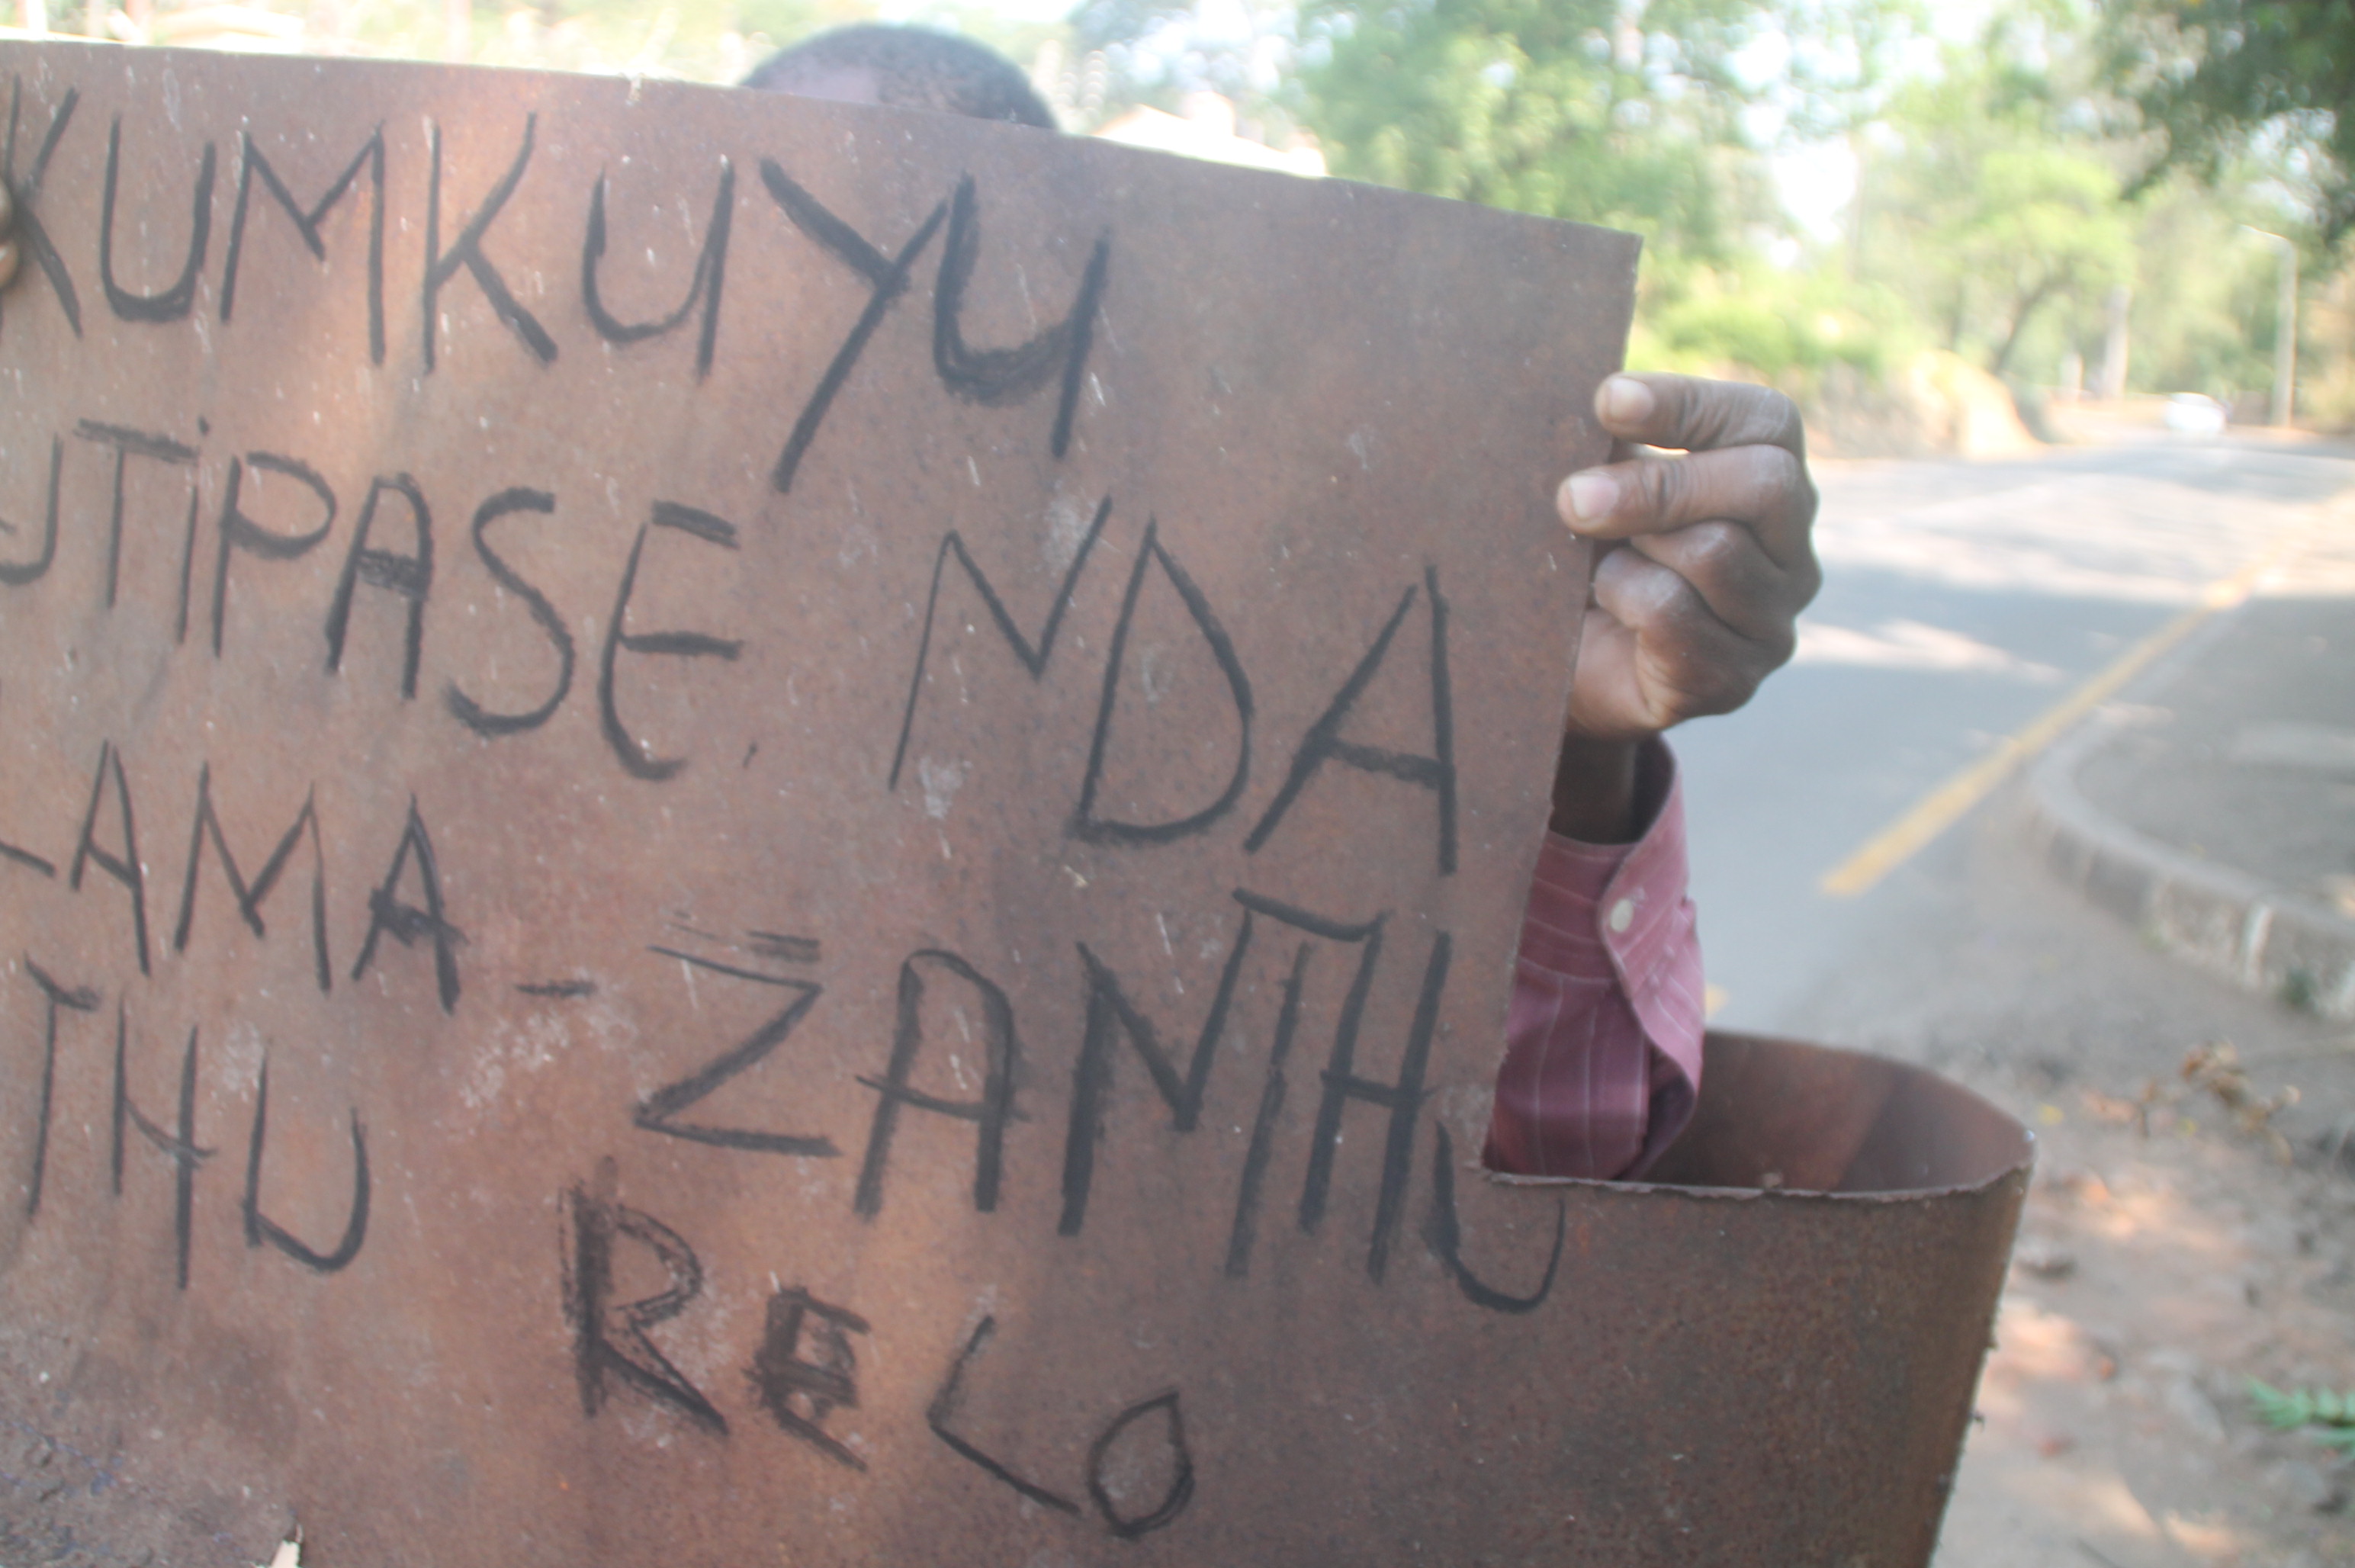 KUMKUYU
UTiPASE NDA
LAMA-ZANTHU
THU RELO